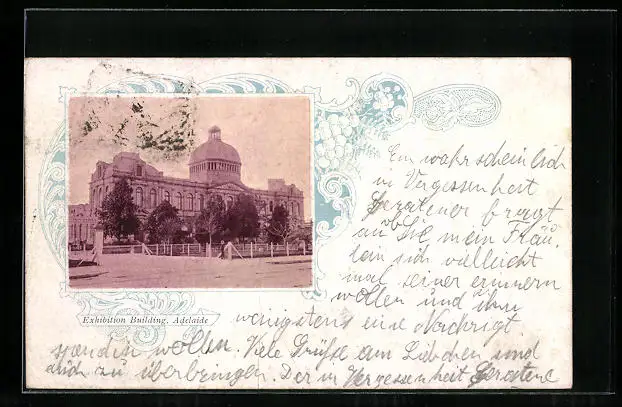 Ein wahrscheinlich
in Vergessenheit
Geratener fragt
an ob Sie, mein Fräu-
lein sich vielleicht
mal seiner erinnern
wollen und ihm
wenigstens eine Nachricht
Exhibition Building, Adelaide
senden wollen. Viele Grüße am Liebchen und
auch zu überbringen. Der in Vergessenheit Geratene